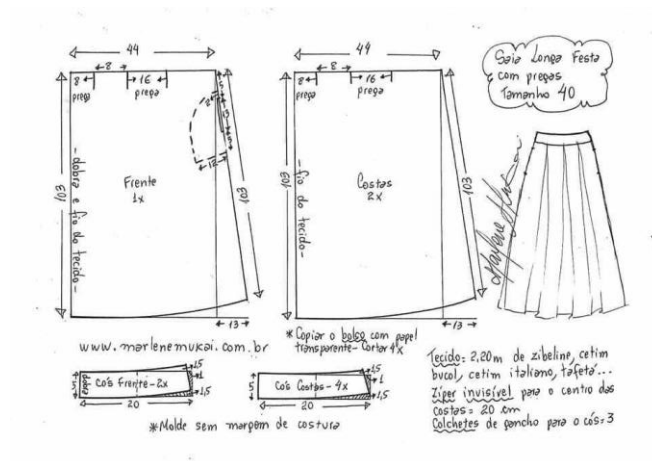 44
8
8
16
prega
prega
5
2
13
5
12
103
- dobra e fio do tecido -
Frente
1x
103
13
49
8
8
16
prega
prega
103
- fio do tecido -
Costas
2x
103
13
Saia Longa Festa
com pregas
Tamanho 40
Marlene Mukai
www.marlenemukai.com.br
* Copiar o bolso com papel
transparente - Cortar 4x
5
dobra
Cós Frente - 2x
1,5
1
1,5
20
5
Cós Costas - 4x
1,5
1
1,5
20
* Molde sem margem de costura
Tecido = 2,20m de zibeline, cetim
bucol, cetim italiano, tafetá...
Zíper invisível para o centro das
costas = 20 cm
Colchetes de gancho para o cós = 3